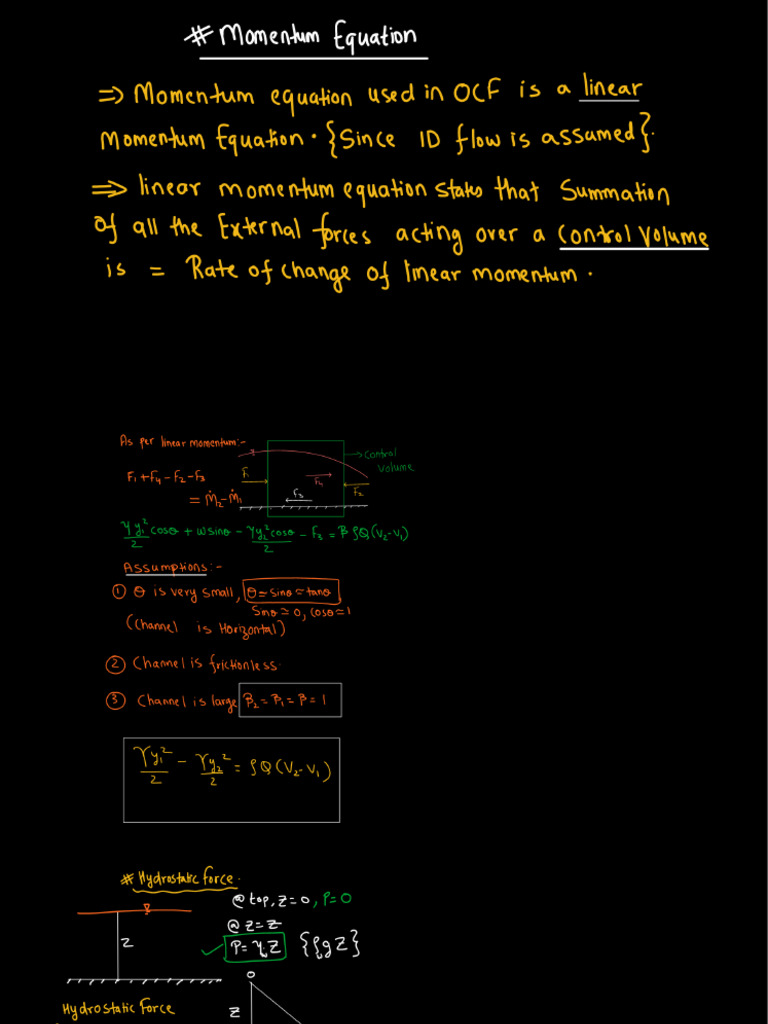 # Momentum Equation
⇒ Momentum equation used in OCF is a linear
Momentum Equation. {Since 1D flow is assumed}.
⇒ linear momentum equation states that Summation
of all the External forces acting over a Control Volume
is = Rate of change of linear momentum.
As per linear momentum:-
→ Control
Volume
F₁
F₄
F₃
F₂
F₁+F₄-F₂-F₃
= Ṁ₂-Ṁ₁
γy₁²/2 cosθ + wsinθ - γy₂²cosθ/2 - F₃ = β ρQ(V₂-V₁)
Assumptions:-
① θ is very small, θ≃sinθ≃tanθ
Sinθ≃0, cosθ≃1
(Channel is Horizontal)
② Channel is frictionless.
③ Channel is large β₂=β₁=β=1
γy₁²/2 - γy₂²/2 = ρQ(V₂-V₁)
# Hydrostatic force.
@top, z=0, P=0
@ z=z
z
✓ P=γ.z {ρgz}
0
Hydrostatic force
z